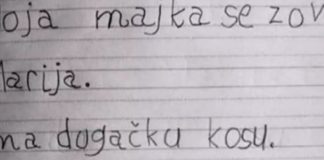 oja majka se zov
larija.
na dugačku kosu.